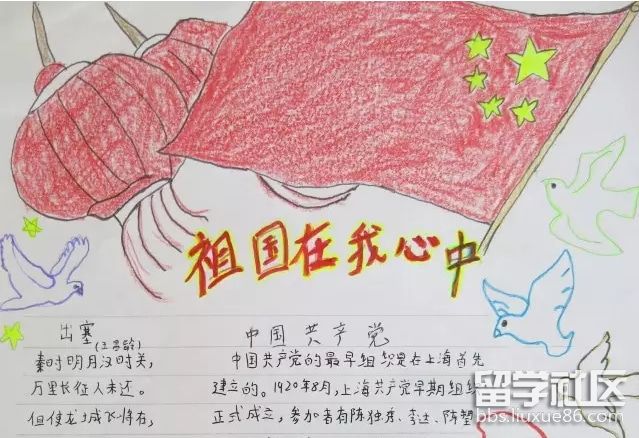 祖国在我心中
出塞(王昌龄)
秦时明月汉时关,
万里长征人未还。
但使龙城飞将在,
中国共产党
中国共产党的最早组织是在上海首先
建立的。1920年8月,上海共产党早期组织
正式成立,参加者有陈独秀、李达、陈望
留学社区
bbs.liuxue86.com